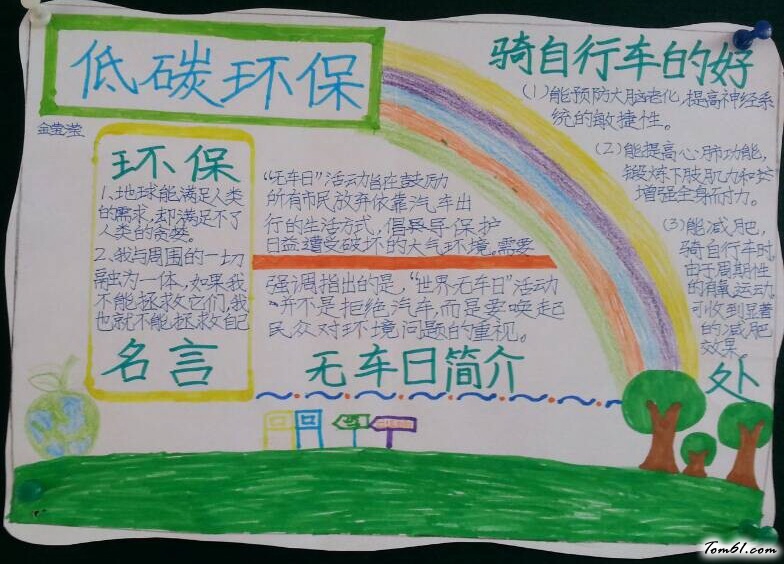 低碳环保
金莹滢
环保
1、地球能满足人类
的需求,却满足不了
人类的贪婪。
2、我与周围的一切
融为一体,如果我
不能拯救它们,我
也就不能拯救自己
名言
“无车日”活动旨在鼓励
所有市民放弃依靠汽车出
行的生活方式,倡导保护
日益遭受破坏的大气环境。需要
强调指出的是,“世界无车日”活动
并不是拒绝汽车,而是要唤起
民众对环境问题的重视。
无车日简介
骑自行车的好
(1)能预防大脑老化,提高神经系
统的敏捷性。
(2)能提高心肺功能,
锻炼下肢肌力和
增强全身耐力。
(3)能减肥,
骑自行车时,
由于周期性
的有氧运动
可收到显著
的减肥
效果。
处
Tom61.com